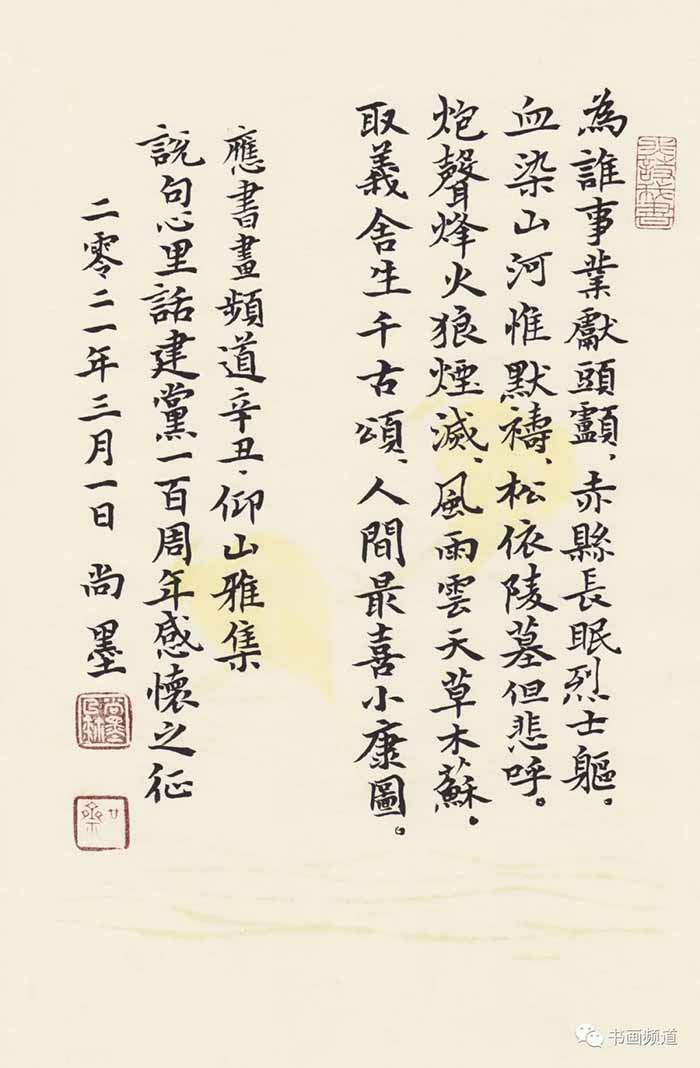 為誰事業獻頭顱、赤縣長眠烈士軀。
血染山河惟默禱、松依陵墓但悲呼。
炮聲烽火狼煙滅、風雨雲天草木蘇。
取義舍生千古頌、人間最喜小康圖。
應書畫頻道辛丑·仰山雅集
說句心里話建黨一百周年感懷之征
二零二一年三月一日 尚墨
书画频道